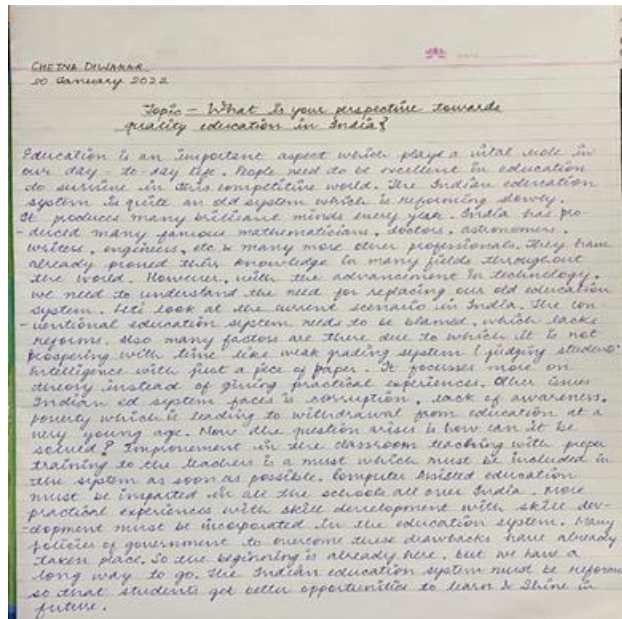 CHETNA DIWAKAR
20 January 2022
Topic - What is your perspective towards
quality education in India?
Education is an important aspect which plays a vital role in
our day - to - day life. People need to be excellent in education
to survive in this competitive world. The Indian education
system is quite an old system which is reforming slowly.
It produces many brilliant minds every year. India has pro
-duced many famous mathematicians, doctors, astronomers,
writers, engineers, etc & many more other professionals. They have
already proved their knowledge in many fields throughout
the world. However, with the advancement in technology,
we need to understand the need for replacing our old education
system. Let's look at the current scenario in India. The con
-ventional education system needs to be blamed, which lacks
reforms. Also many factors are there due to which it is not
prospering with time like weak grading system (judging students'
intelligence with just a piece of paper. It focusses more on
theory instead of giving practical experiences. Other issues
Indian ed system faces is corruption, lack of awareness,
poverty which is leading to withdrawal from education at a
very young age. Now the question arises is how can it be
solved? Improvement in the classroom teaching with proper
training to the teachers is a must which must be included in
the system as soon as possible. Computer Assisted education
must be imparted in all the schools all over India. More
practical experiences with skill development with skill dev-
-elopment must be incorporated in the education system. Many
policies of government to overcome these drawbacks have already
taken place. So the beginning is already here, but we have a
long way to go. The Indian education system must be reform
so that students get better opportunities to learn & shine in
future.